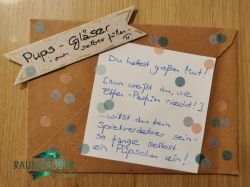 Pups - Gläser
- zum selber füllen
Du hattest großen Mut!
[nun weißt du, wie
Elfen-Pups(i)n riecht!]
...willst du kein
Spielverderber sein -
so fange selbst
ein Püpschen ein!
RAUMZAUBER